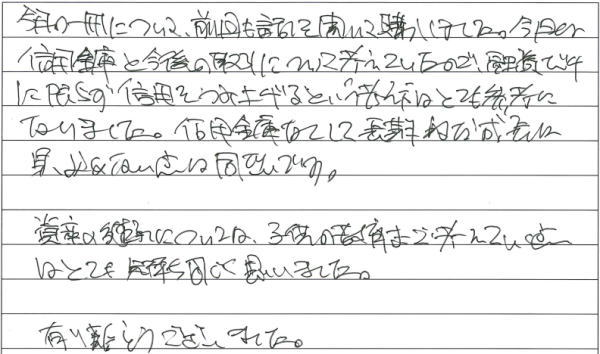 今月の一冊について、前回も話を聞いて購入しました。今日は
信用金庫と今後の取引について考えていたので、融資だけ
に限らず信用をつみ上げるという考え方はとても参考に
なりました。信用金庫なくして長期的な成長は
見込めない点は同感です。
資産の継承については、子供の教育まで考えている点
はとても 面白く思いました。
有り難とうございました。